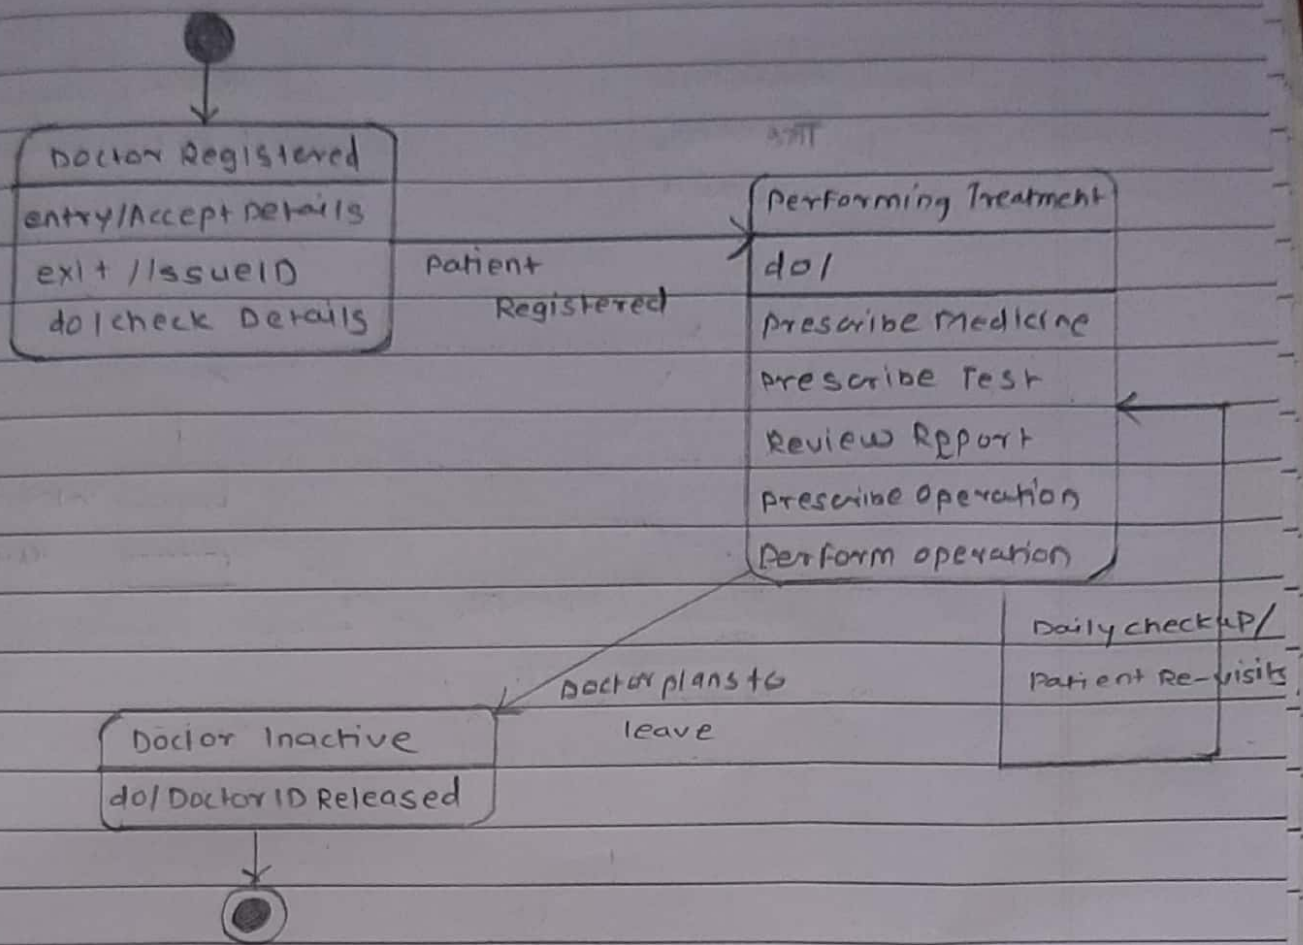 Doctor Registered
entry/Accept Details
exit //IssueID
do/check Details
Patient
Registered
Performing Treatment
do/
Prescribe Medicine
Prescribe Test
Review Report
Prescribe Operation
Perform operation
Daily checkup/
Patient Re-visits
Doctor plans to
leave
Doctor Inactive
do/Doctor ID Released